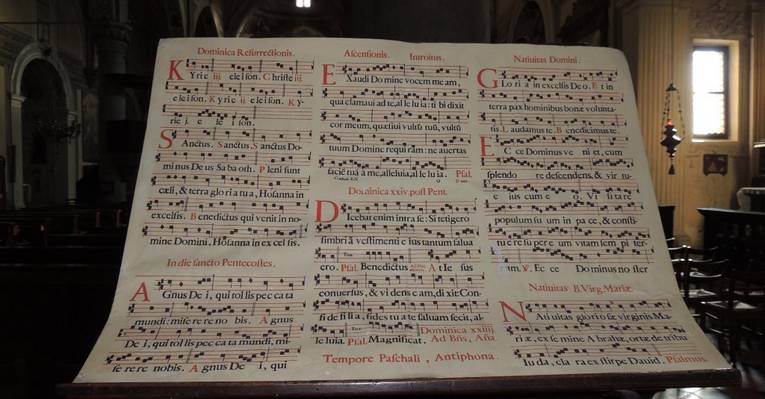 Dominica Resurrectionis.
Kyrie iii eleison. Christe iii
eleison. Kyrie ii eleison. Ky-
rie j. eleison.
Sanctus, Sanctus, Sanctus Do-
minus Deus Sabaoth. Pleni sunt
cæli, & terra gloria tua, Hosanna in
excelsis. Benedictus qui venit in no-
mine Domini, Hosanna in excelsis.
In die sancto Pentecostes.
Agnus Dei, qui tollis peccata
mundi: miserere nobis. Agnus
Dei, qui tollis peccata mundi, mi-
serere nobis. Agnus Dei, qui
Ascensionis. Introitus.
Exaudi Domine vocem meam,
qua clamaui ad te, alleluia: tibi dixit
cor meum, quæsiui vultũ tuũ, vultũ
tuum Domine requiram: ne auertas
faciẽ tuã a me, alleluia, alleluia. Psal.
Dominica xxiv. post Pent.
Dicebat enim intra se: Si tetigero
fimbriã vestimenti eius tantum salua
ero. Psal. Benedictus At Iesus
conuersus, & videns eam, dixit: Con-
fide filia, fides tua te saluam fecit, al-
leluia. Psal. Magnificat. Dominica xxiiij
Ad Bñs, Aña.
Tempore Paschali, Antiphona.
Natiuitas Domini.
Gloria in excelsis Deo. Et in
terra pax hominibus bonæ volunta-
tis. Laudamus te. Benedicimus te.
Ecce Dominus veniet, cum
splendore descendens, & virtu-
eius cum eo. Visitare
populum suum in pace, & consti-
tuere super eum vitam sempiter-
nam. ℣. Ecce Dominus noster
Natiuitas B. Virg. Mariæ.
Natiuitas gloriosæ virginis Ma-
riæ, ex semine Abrahæ, ortæ de tribu
Iuda, clara ex stirpe Dauid. Psalmus